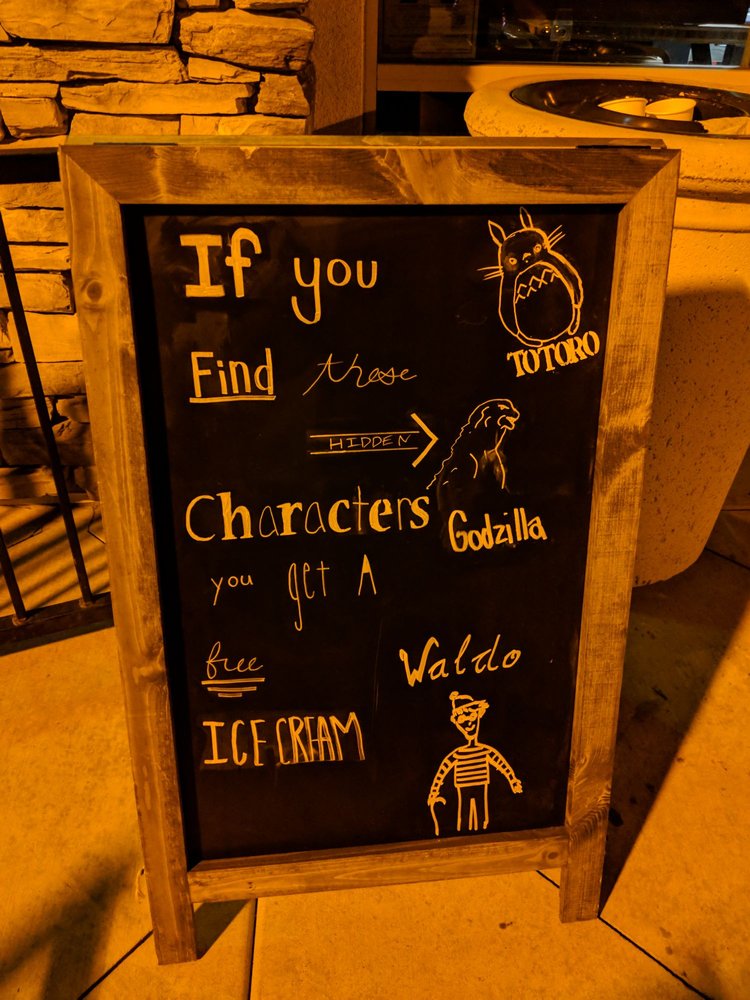 If you
TOTORO
Find these
HIDDEN
Characters
Godzilla
you get A
free
Waldo
ICE CREAM